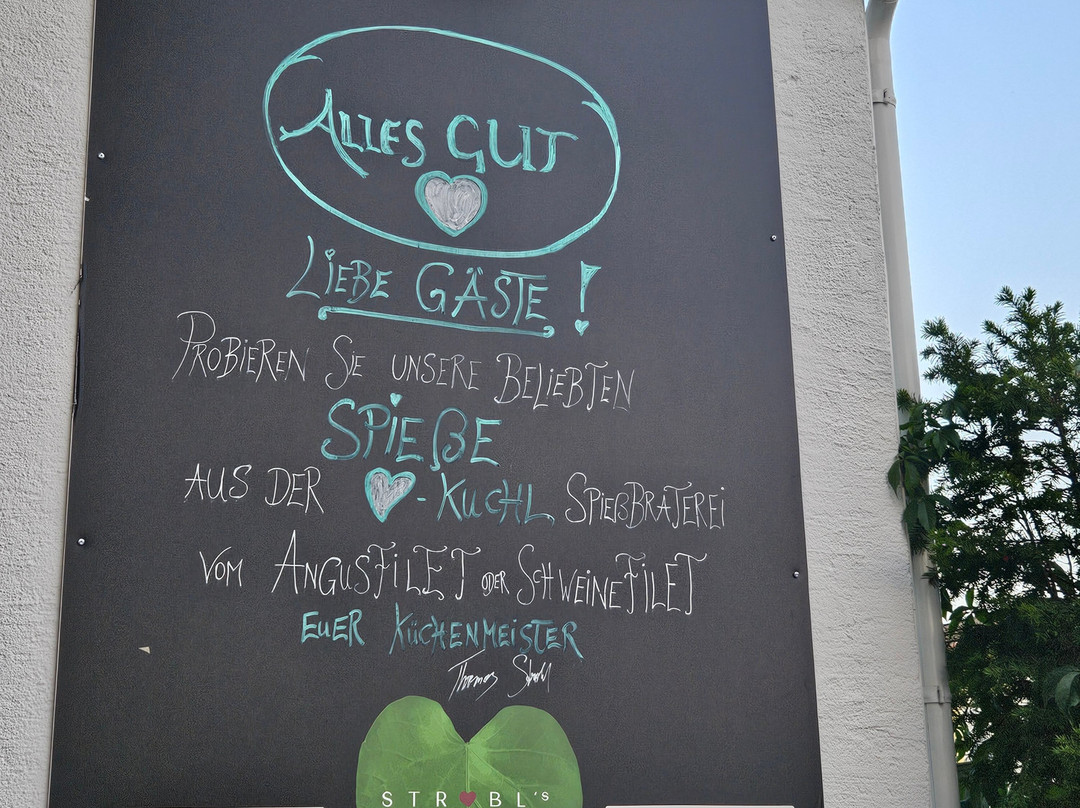 ALLES GUT
LIEBE GÄSTE!
PROBIEREN SIE UNSERE BELIEBTEN
SPIEßE
AUS DER ♥-KUCHL SPIEßBRATEREI
VOM ANGUSFILET ODER SCHWEINEFILET
EUER KÜCHENMEISTER
Thomas Strobl
STR♥BL's